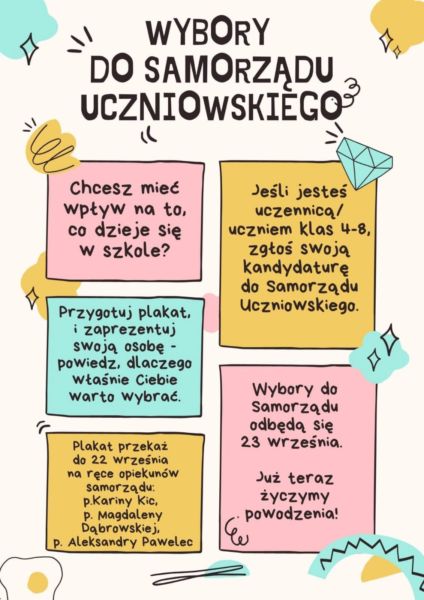 WYBORY
DO SAMORZĄDU
UCZNIOWSKIEGO
Chcesz mieć
wpływ na to,
co dzieje się
w szkole?
Jeśli jesteś
uczennicą/
uczniem klas 4-8,
zgłoś swoją
kandydaturę
do Samorządu
Uczniowskiego.
Przygotuj plakat,
i zaprezentuj
swoją osobę -
powiedz, dlaczego
właśnie Ciebie
warto wybrać.
Wybory do
Samorządu
odbędą się
23 września.
Już teraz
życzymy
powodzenia!
Plakat przekaż
do 22 września
na ręce opiekunów
samorządu:
p.Kariny Kic,
p. Magdaleny
Dąbrowskiej,
p. Aleksandry Pawelec